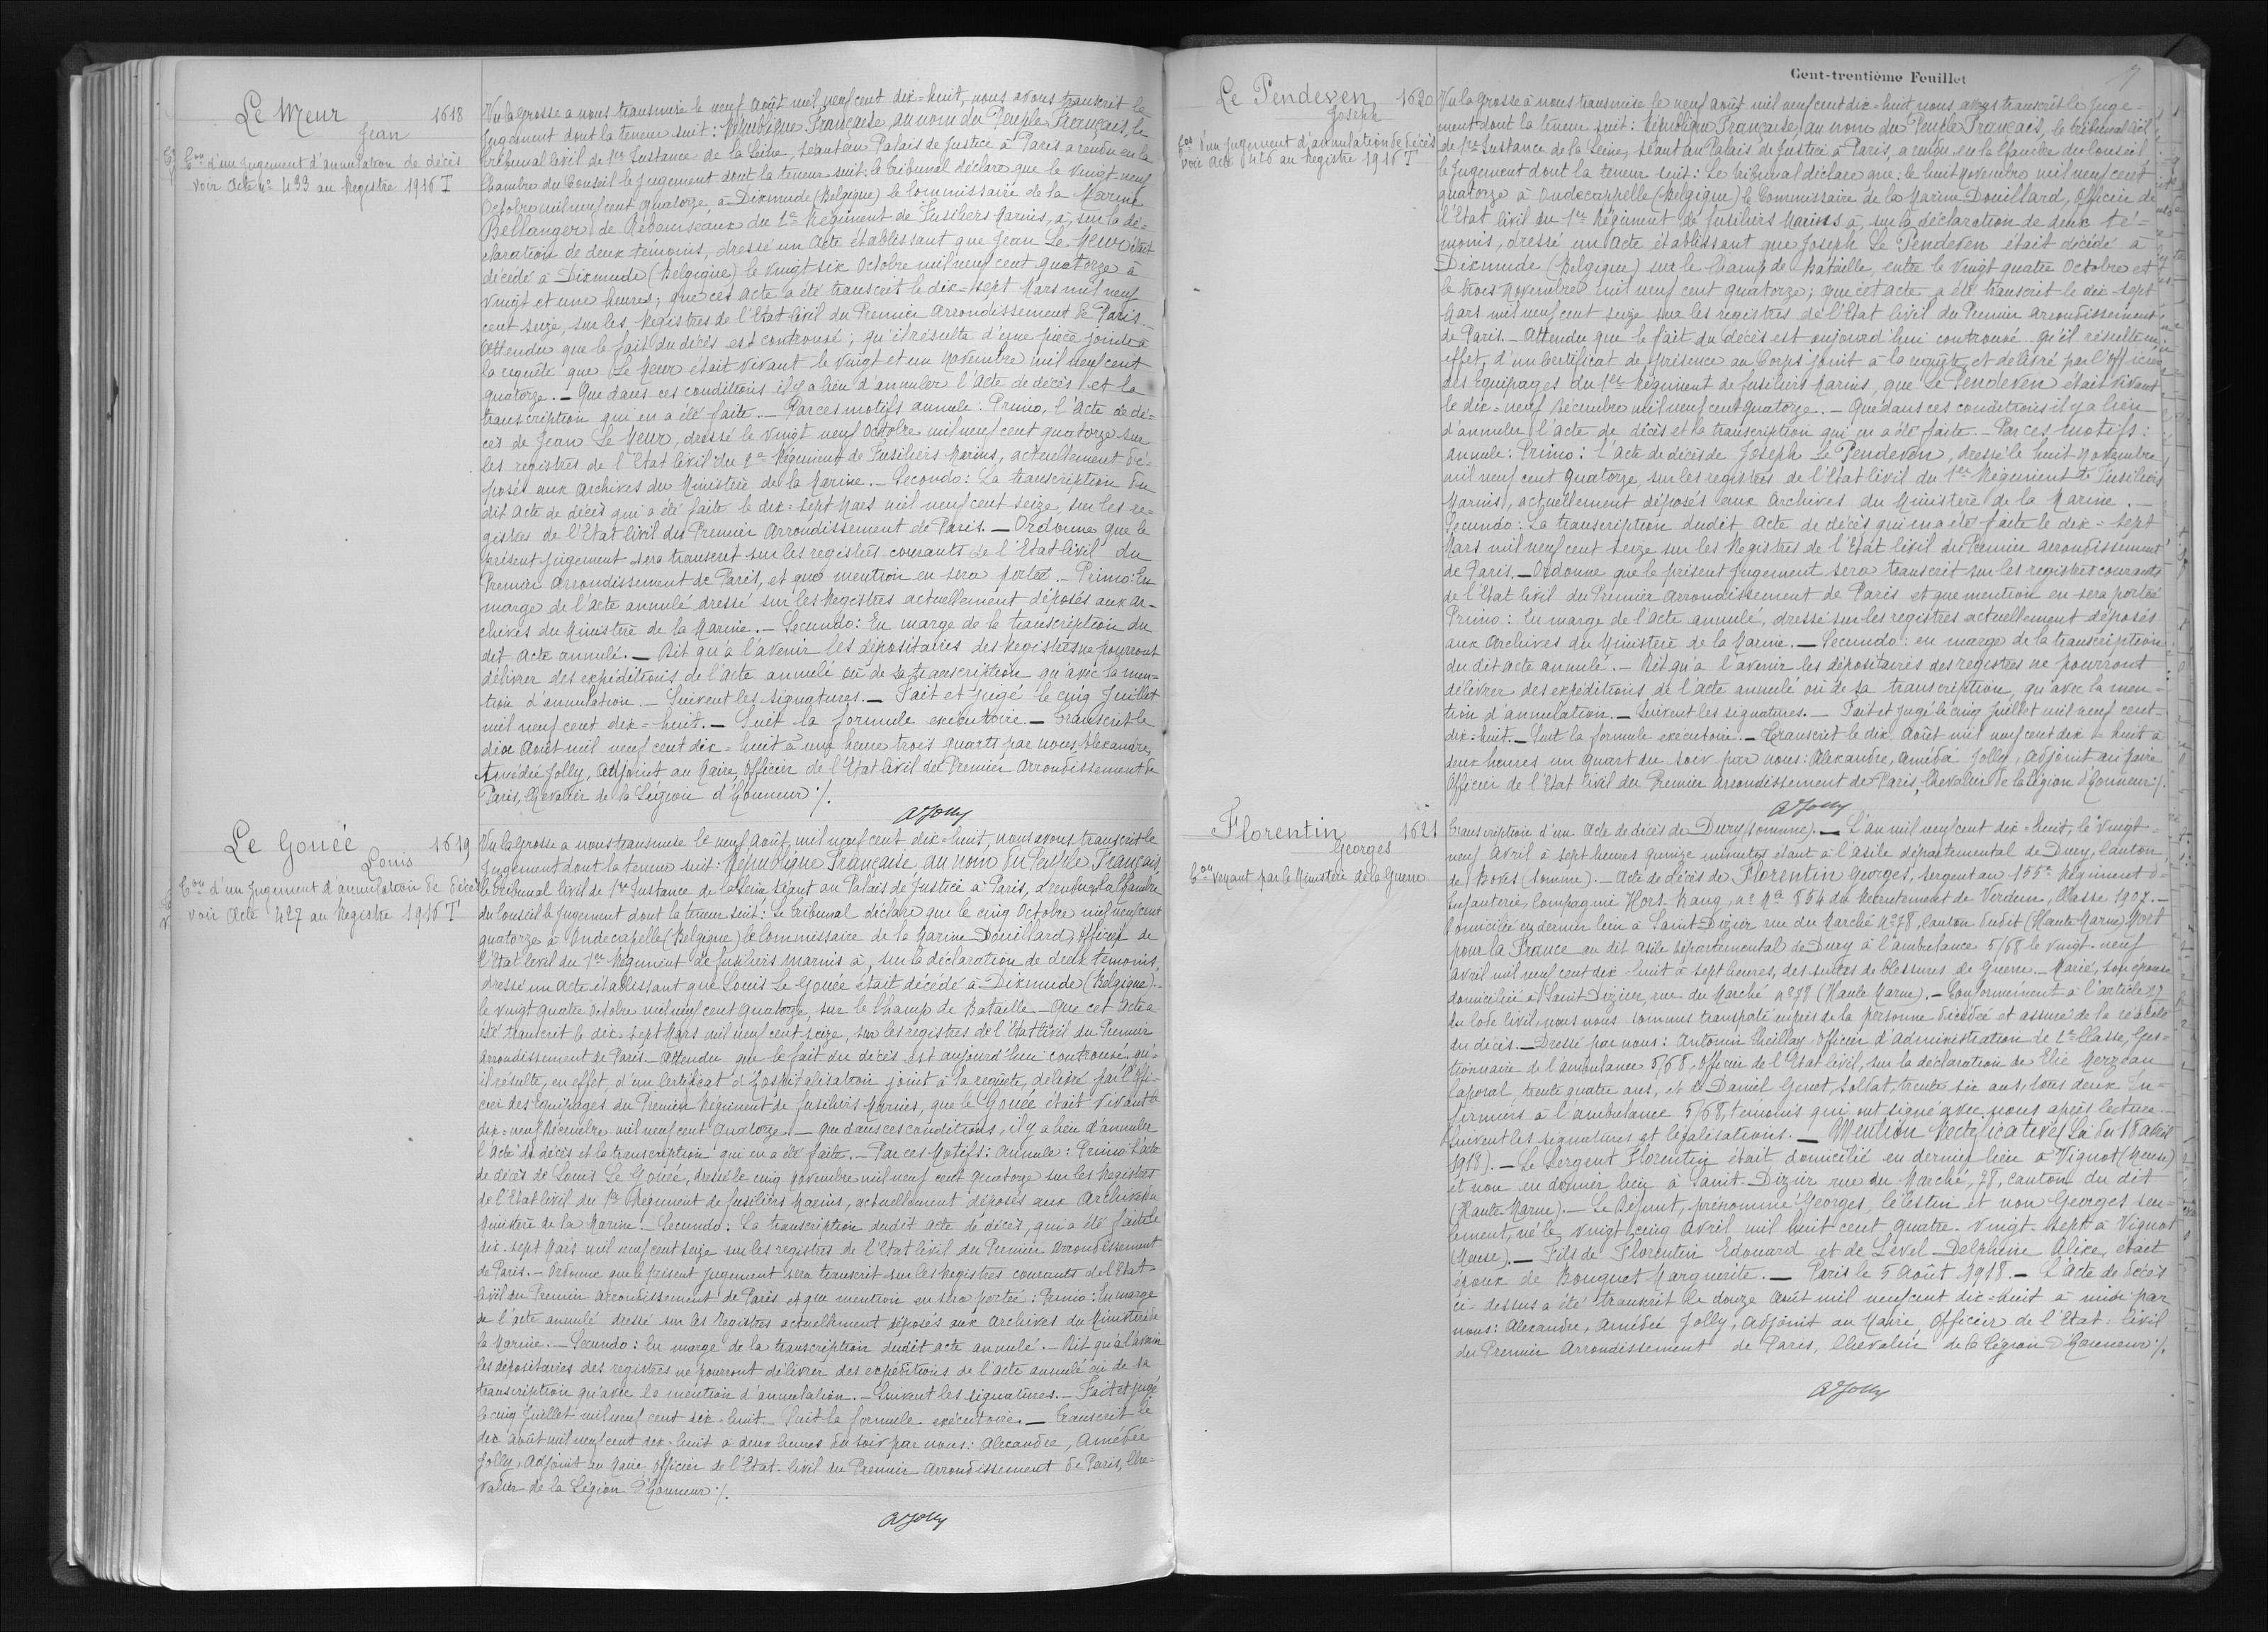 Le Meur 1618
Jean
Con d'un Jugement d'annulation de décès
voir Acte No 433 au Registre 1916 T
Vu la Grosse a nous transmise le neuf Août mil neuf cent dix=huit, nous avons transcrit le
Jugement dont la teneur suit: République Française, au nom du Peuple Français, le
Tribunal civil de 1re Instance de la Seine, séant au Palais de Justice à Paris a rendu en la
Chambre du Conseil le Jugement dont la teneur suit: le Tribunal déclare que le Vingt-neuf
Octobre mil neuf cent quatorze, à Dixmude (Belgique) le Commissaire de la Marine
Bellanger de Rebourseaux du 2e Régiment de Fusiliers Marins, a, sur la dé-
claration de deux témoins, dressé un Acte établissant que Jean Le Meur était
décédé à Dixmude (Belgique) le Vingt six Octobre mil neuf cent quatorze à
vingt et une heures; que cet acte a été transcrit le dix=sept Mars mil neuf
cent seize, sur les Registres de l'Etat Civil du Premier Arrondissement de Paris.
Attendu que le fait du décès est controuvé; qu'il résulte d'une pièce jointe à
la requête que Le Meur était vivant le vingt et un Novembre mil neuf cent
quatorze. _ Que dans ces conditions il y a lieu d'annuler l'Acte de décès et la
transcription qui en a été faite. _ Par ces motifs annule: Primo, l'Acte de dé=
cès de Jean Le Meur, dressé le vingt neuf Octobre mil neuf cent quatorze sur
les registres de l'Etat Civil du 2e Régiment de Fusiliers Marins, actuellement dé=
posés aux Archives du Ministère de la Marine. _ Secondo: La transcription du
dit Acte de décès qui a été faite le dix=sept Mars mil neuf cent seize, sur les re-
gistres de l'Etat Civil du Premier Arrondissement de Paris. _ Ordonne que le
présent Jugement sera transcrit sur les registres courants de l'Etat Civil du
Premier Arrondissement de Paris, et que mention en sera portée. _ Primo: En
marge de l'acte annulé dressé sur les Registres actuellement déposés aux Ar-
chives du Ministère de la Marine. _ Secundo: En marge de la transcription du
dit Acte annulé. _ Dit qu'à l'avenir les dépositaires des Registres ne pourront
délivrer des expéditions de l'acte annulé ou de sa transcription qu'avec la men-
tion d'annulation. _ Suivent les signatures. _ Fait et Jugé le cinq Juillet
mil neuf cent dix=huit. _ Suit la formule exécutoire. _ Transcrit le
dix Août mil neuf cent dix=huit à une heure trois quarts par nous, Alexandre,
Amédée Jolly, Adjoint au Maire, Officier de l'Etat Civil du Premier Arrondissement de
Paris, Chevalier de la Légion d'Honneur ./.
AJolly
Le Gouée 1619
Louis
Con d'un Jugement d'annulation de décès
voir Acte 427 au Registre 1916 T
Vu la Grosse a nous transmise le neuf Août mil neuf cent dix=huit, nous avons transcrit le
Jugement dont la teneur suit: République Française, au nom du Peuple Français,
le Tribunal civil de 1re Instance de la Seine séant au Palais de Justice à Paris, a rendu en la Chambre
du Conseil le Jugement dont la teneur suit: Le Tribunal déclare que le cinq Octobre mil neuf cent
quatorze à Ondecapelle (Belgique) le Commissaire de la Marine Douillard, Officier de
l'Etat Civil du 1er Régiment de Fusiliers Marins à, sur la déclaration de deux témoins,
dressé un Acte établissant que Louis Le Gouée était décédé à Dixmude (Belgique)
le vingt quatre Octobre mil neuf cent quatorze, sur le Champ de Bataille _ Que cet Acte a
été transcrit le dix-sept Mars mil neuf cent seize, sur les registres de l'Etat Civil du Premier
Arrondissement de Paris. _ Attendu que le fait du décès est aujourd'hui controuvé, qu'-
il résulte, en effet, d'un Certificat d'Hospitalisation joint à la requête, délivré par l'Offi-
cier des équipages du Premier Régiment de Fusiliers Marins, que Le Gouée était vivant le
dix=neuf Décembre mil neuf cent quatorze. _ Que dans ces conditions, il y a lieu d'annuler
l'Acte de décès et la transcription qui en a été faite. _ Par ces Motifs: annule: Primo: l'acte
de décès de Louis Le Gouée, dressé le cinq Novembre mil neuf cent quatorze sur les Registres
de l'Etat Civil du 1er Régiment de Fusiliers Marins, actuellement déposés aux Archives du
Ministère de la Marine. Secundo: La transcription dudit acte de décès, qui a été faite le
dix-sept Mars mil neuf cent seize sur les registres de l'Etat Civil du Premier Arrondissement
de Paris. _ Ordonne que le présent Jugement sera transcrit sur les Registres courants de l'Etat-
Civil du Premier Arrondissement de Paris et que mention en sera portée: Primo: En marge
de l'acte annulé dressé sur les Registres actuellement déposés aux Archives du Ministère de
la Marine. _ Secundo: En marge de la transcription dudit acte annulé. _ Dit qu'à l'avenir
les dépositaires des registres ne pourront délivrer des expéditions de l'acte annulé ou de sa
transcription qu'avec la mention d'annulation. _ Suivent les signatures. _ Fait et jugé
le cinq Juillet mil neuf cent dix-huit. Suit la formule exécutoire. _ Transcrit le
dix Août mil neuf cent dix-huit à deux heures du soir par nous: Alexandre, Amédée
Jolly, Adjoint au Maire Officier de l'Etat-Civil du Premier Arrondissement de Paris, Che=
valier de la Légion d'Honneur ./.
AJolly
Cent-trentième Feuillet
Le Pendeven 1620
Joseph
Con d'un Jugement d'annulation de décès
voir Acte 426 au Registre 1916 T
Vu la Grosse à nous transmise le neuf août mil neuf cent dix=huit, nous avons transcrit le Juge=
ment dont la teneur suit: République Française, au nom du Peuple Français, le Tribunal civil
de 1re Instance de la Seine, séant au Palais de Justice à Paris, a rendu en la Chambre du Conseil
le Jugement dont la teneur suit: Le Tribunal déclare que: le huit Novembre mil neuf cent
quatorze à Ondecappelle (Belgique) le Commissaire de la Marine Douillard, Officier de
l'Etat Civil du 1er Régiment de Fusiliers Marins a, sur la déclaration de deux té=
moins, dressé un Acte établissant que Joseph Le Pendeven était décédé à
Dixmude (Belgique) sur le Champ de Bataille, entre le vingt quatre Octobre et
le trois Novembre mil neuf cent quatorze; que cet acte a été transcrit le dix-sept
Mars mil neuf cent seize sur les registres de l'Etat Civil du Premier Arrondissement
de Paris. _ Attendu que le fait du décès est aujourd'hui controuvé qu'il résulte en
effet, d'un Certificat de présence au Corps joint à la requête et délivré par l'Officier
des équipages du 1er Régiment de Fusiliers Marins, que Le Pendeven était vivant
le dix=neuf Décembre mil neuf cent quatorze. _ Que dans ces conditions il y a lieu
d'annuler l'acte de décès et la transcription qui en a été faite. _ Par ces motifs:
annule: Primo: l'Acte de décès de Joseph Le Pendeven, dressé le huit Novembre
mil neuf cent quatorze, sur les registres de l'Etat Civil du 1er Régiment de Fusiliers
Marins, actuellement déposés aux Archives du Ministère de la Marine. _
Secundo: La transcription dudit Acte de décès qui en a été faite le dix=sept
Mars mil neuf cent seize sur les Registres de l'Etat Civil du Premier Arrondissement
de Paris. _ Ordonne que le présent Jugement sera transcrit sur les registres courants
de l'Etat Civil du Premier Arrondissement de Paris et que mention en sera portée
Primo: En marge de l'acte annulé, dressé sur les registres actuellement déposés
aux Archives du Ministère de la Marine. _ Secundo: en marge de la transcription
du dit acte annulé. _ Dit qu'à l'avenir les dépositaires des registres ne pourront
délivrer des expéditions de l'acte annulé ou de sa transcription, qu'avec la men=
tion d'annulation. _ Suivent les signatures. _ Fait et Jugé le cinq Juillet mil neuf cent
dix=huit. _ Suit la formule exécutoire. _ Transcrit le dix Août mil neuf cent dix=huit à
deux heures un quart du soir par nous: Alexandre, Amédée Jolly, Adjoint au Maire
Officier de l'Etat Civil du Premier Arrondissement de Paris, Chevalier de la Légion d'Honneur ./.
AJolly
Florentin 1621
Georges
Con venant par le Ministère de la Guerre
Transcription d'un Acte de décès de Dury (Somme). _ L'an mil neuf cent dix=huit, le vingt=
neuf Avril à sept heures quinze minutes étant à l'asile départemental de Dury, Canton
de Boves (Somme). _ Acte de décès de Florentin Georges, Sergent au 155e Régiment d'-
Infanterie, Compagnie Hors-Rang, No Mle 854 du Recrutement de Verdun, Classe 1907. _
Domicilié en dernier lieu à Saint-Dizier rue du Marché No 78, Canton dudit (Haute Marne) Mort
pour la France au dit asile départemental de Dury à l'ambulance 5/68 le vingt-neuf
Avril mil neuf cent dix-huit à sept heures, des suites de blessures de Guerre. _ Marié, son épouse
domiciliée à Saint Dizier, rue du Marché No 78 (Haute Marne). _ Conformément à l'article 77
du Code Civil, nous nous sommes transporté auprès de la personne décédée et assuré de la réalité
du décès. _ Dressé par nous: Antonin Cheillay Officier d'Administration de 2e Classe, Ges=
tionnaire de l'ambulance 5/68, Officier de l'Etat Civil, sur la déclaration de Elie Merzeau
Caporal, trente quatre ans, et de Daniel Genet, Soldat, trente six ans, tous deux In=
firmiers à l'ambulance 5/68, témoins qui ont signé avec nous après lecture _
Suivent les signatures et légalisations. _ Mention Rectificative (Loi du 18 avril
1918). _ Le Sergent Florentin était domicilié en dernier lieu à Vignot (Meuse)
et non en dernier lieu à Saint-Dizier rue du Marché, 78, canton du dit
(Haute Marne). _ Le Défunt, prénommé Georges, Célestin et non Georges seu=
lement, né le vingt cinq Avril mil huit cent quatre-vingt-sept à Vignot
(Meuse). _ Fils de Florentin Edouard et de Level Delphine Alice, était
époux de Bouquet Marguerite. _ Paris le 5 Août 1918. _ L'Acte de décès
ci-dessus a été transcrit le douze Août mil neuf cent dix=huit à midi par
nous: Alexandre, Amédée Jolly, Adjoint au Maire Officier de l'Etat-Civil
du Premier Arrondissement de Paris, Chevalier de la Légion d'Honneur ./.
AJolly